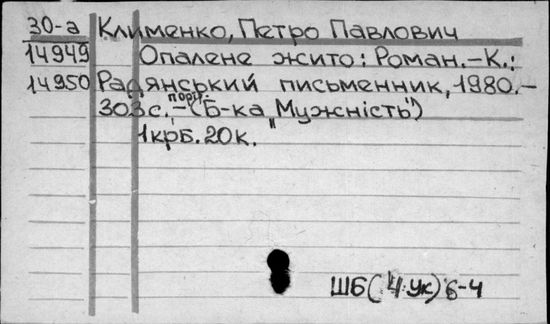 30-а Клименко, Петро Павлович
14949 Опалене жито: Роман.–К.:
14950 Радянський письменник, 1980.–
303с.,портр.–(Б-ка „Мужність")
1крб. 20к.
ШБ(4Ук) 6-4